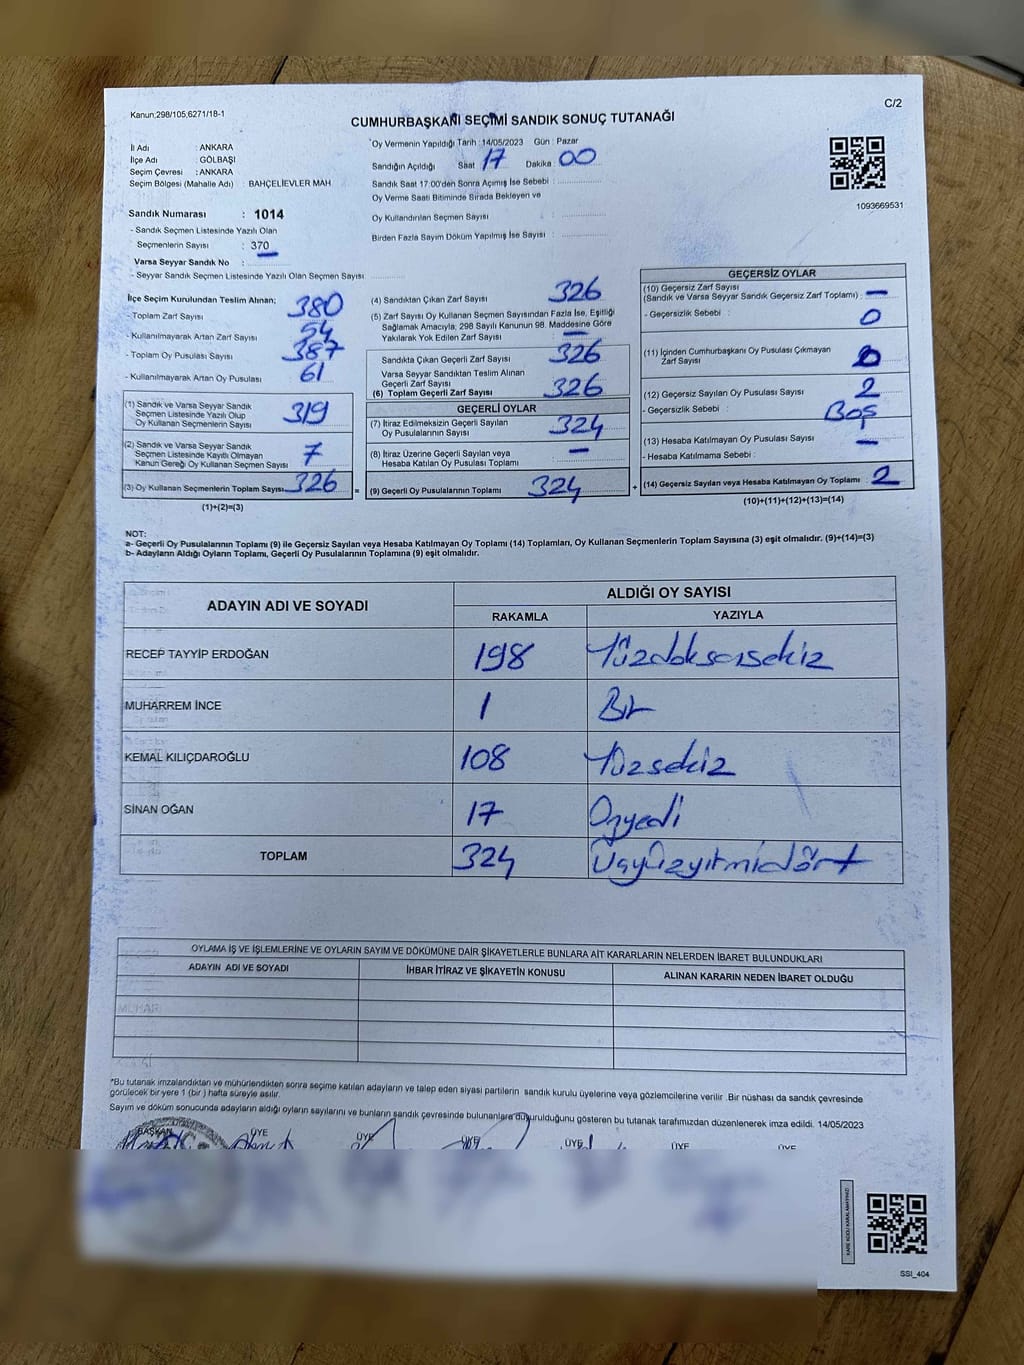 Kanun;298/105;6271/18-1
C/2
CUMHURBAŞKANI SEÇİMİ SANDIK SONUÇ TUTANAĞI
İl Adı : ANKARA
İlçe Adı : GÖLBAŞI
Seçim Çevresi : ANKARA
Seçim Bölgesi (Mahalle Adı) : BAHÇELİEVLER MAH
Sandık Numarası : 1014
- Sandık Seçmen Listesinde Yazılı Olan
Seçmenlerin Sayısı : 370
Varsa Seyyar Sandık No :
- Seyyar Sandık Seçmen Listesinde Yazılı Olan Seçmen Sayısı
Oy Vermenin Yapıldığı Tarih : 14/05/2023 Gün : Pazar
Sandığın Açıldığı Saat 17 Dakika : 00
Sandık Saat 17:00'den Sonra Açımış İse Sebebi :
Oy Verme Saati Bitiminde Sırada Bekleyen ve
Oy Kullandırılan Seçmen Sayısı :
Birden Fazla Sayım Döküm Yapılmış İse Sayısı :
1093669531
İlçe Seçim Kurulundan Teslim Alınan;
- Toplam Zarf Sayısı : 380
- Kullanılmayarak Artan Zarf Sayısı : 54
- Toplam Oy Pusulası Sayısı : 387
- Kullanılmayarak Artan Oy Pusulası : 61
(1) Sandık ve Varsa Seyyar Sandık
Seçmen Listesinde Yazılı Olup
Oy Kullanan Seçmenlerin Sayısı 319
(2) Sandık ve Varsa Seyyar Sandık
Seçmen Listesinde Kayıtlı Olmayan
Kanun Gereği Oy Kullanan Seçmen Sayısı 7
(3) Oy Kullanan Seçmenlerin Toplam Sayısı 326 =
(1)+(2)=(3)
(4) Sandıktan Çıkan Zarf Sayısı 326
(5) Zarf Sayısı Oy Kullanan Seçmen Sayısından Fazla İse, Eşitliği
Sağlamak Amacıyla; 298 Sayılı Kanunun 98. Maddesine Göre
Yakılarak Yok Edilen Zarf Sayısı : —
Sandıkta Çıkan Geçerli Zarf Sayısı 326
Varsa Seyyar Sandıktan Teslim Alınan
Geçerli Zarf Sayısı
(6) Toplam Geçerli Zarf Sayısı 326
GEÇERLİ OYLAR
(7) İtiraz Edilmeksizin Geçerli Sayılan
Oy Pusulalarının Sayısı 324
(8) İtiraz Üzerine Geçerli Sayılan veya
Hesaba Katılan Oy Pusulası Toplamı —
(9) Geçerli Oy Pusulalarının Toplamı 324 +
GEÇERSİZ OYLAR
(10) Geçersiz Zarf Sayısı
(Sandık ve Varsa Seyyar Sandık Geçersiz Zarf Toplamı) : —
- Geçersizlik Sebebi : 0
(11) İçinden Cumhurbaşkanı Oy Pusulası Çıkmayan
Zarf Sayısı 0
(12) Geçersiz Sayılan Oy Pusulası Sayısı 2
- Geçersizlik Sebebi : Boş
(13) Hesaba Katılmayan Oy Pusulası Sayısı —
- Hesaba Katılmama Sebebi :
(14) Geçersiz Sayılan veya Hesaba Katılmayan Oy Toplamı : 2
(10)+(11)+(12)+(13)=(14)
NOT:
a- Geçerli Oy Pusulalarının Toplamı (9) ile Geçersiz Sayılan veya Hesaba Katılmayan Oy Toplamı (14) Toplamları, Oy Kullanan Seçmenlerin Toplam Sayısına (3) eşit olmalıdır. (9)+(14)=(3)
b- Adayların Aldığı Oyların Toplamı, Geçerli Oy Pusulalarının Toplamına (9) eşit olmalıdır.
ADAYIN ADI VE SOYADI ALDIĞI OY SAYISI
RAKAMLA YAZIYLA
RECEP TAYYİP ERDOĞAN 198 Yüzdoksansekiz
MUHARREM İNCE 1 Bir
KEMAL KILIÇDAROĞLU 108 Yüzsekiz
SİNAN OĞAN 17 Onyedi
TOPLAM 324 Üçyüzyirmidört
OYLAMA İŞ VE İŞLEMLERİNE VE OYLARIN SAYIM VE DÖKÜMÜNE DAİR ŞİKAYETLERLE BUNLARA AİT KARARLARIN NELERDEN İBARET BULUNDUKLARI
ADAYIN ADI VE SOYADI İHBAR İTİRAZ VE ŞİKAYETİN KONUSU ALINAN KARARIN NEDEN İBARET OLDUĞU
*Bu tutanak imzalandıktan ve mühürlendikten sonra seçime katılan adayların ve talep eden siyasi partilerin sandık kurulu üyelerine veya gözlemcilerine verilir. Bir nüshası da sandık çevresinde
görülecek bir yere 1 (bir) hafta süreyle asılır.
Sayım ve döküm sonucunda adayların aldığı oyların sayılarını ve bunların sandık çevresinde bulunanlara duyurulduğunu gösteren bu tutanak tarafımızdan düzenlenerek imza edildi. 14/05/2023
BAŞKAN ÜYE ÜYE ÜYE ÜYE ÜYE ÜYE
SSI_404